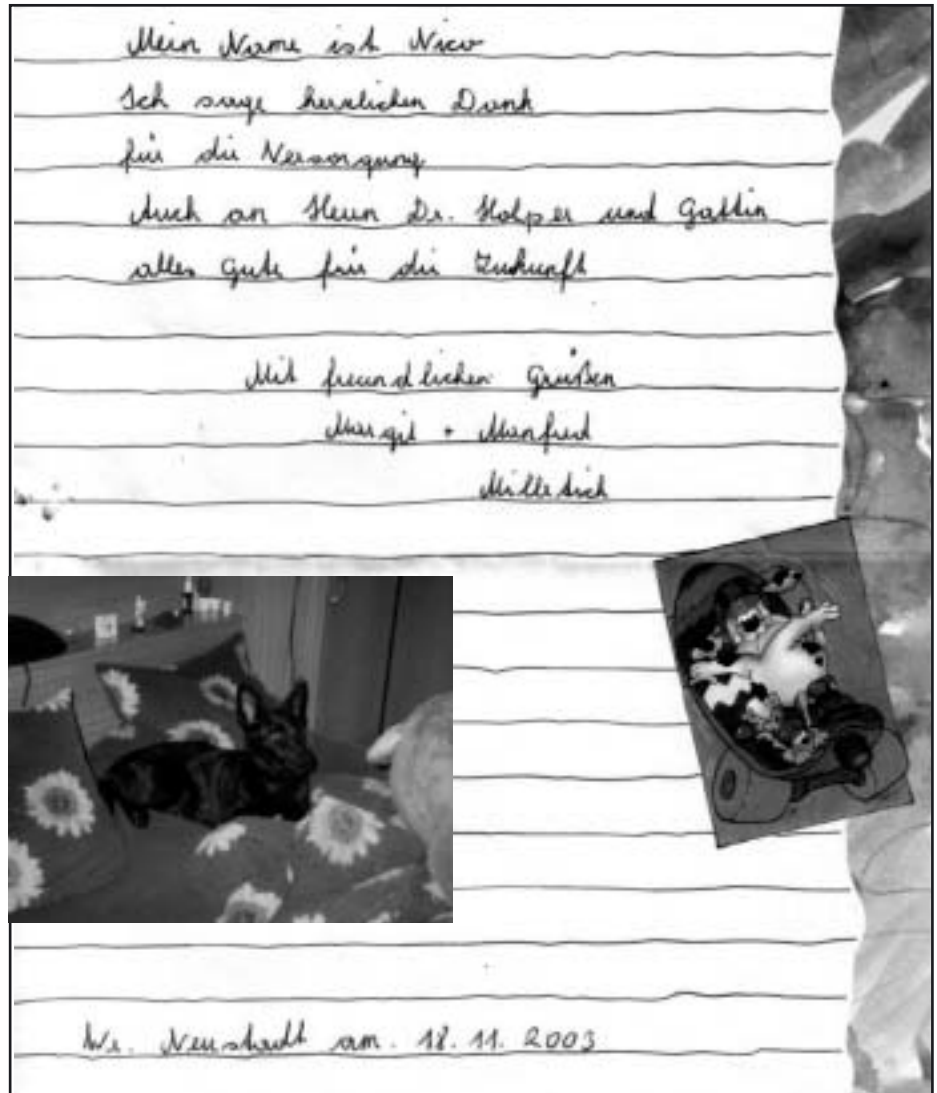 Mein Name ist Nico
Ich sage herzlichen Dank
für die Versorgung
Auch an Herrn Dr. Holper und Gattin
alles Gute für die Zukunft
Mit freundlichen Grüßen
Margit + Manfred
Milletich
Wr. Neustadt am. 18.11.2003